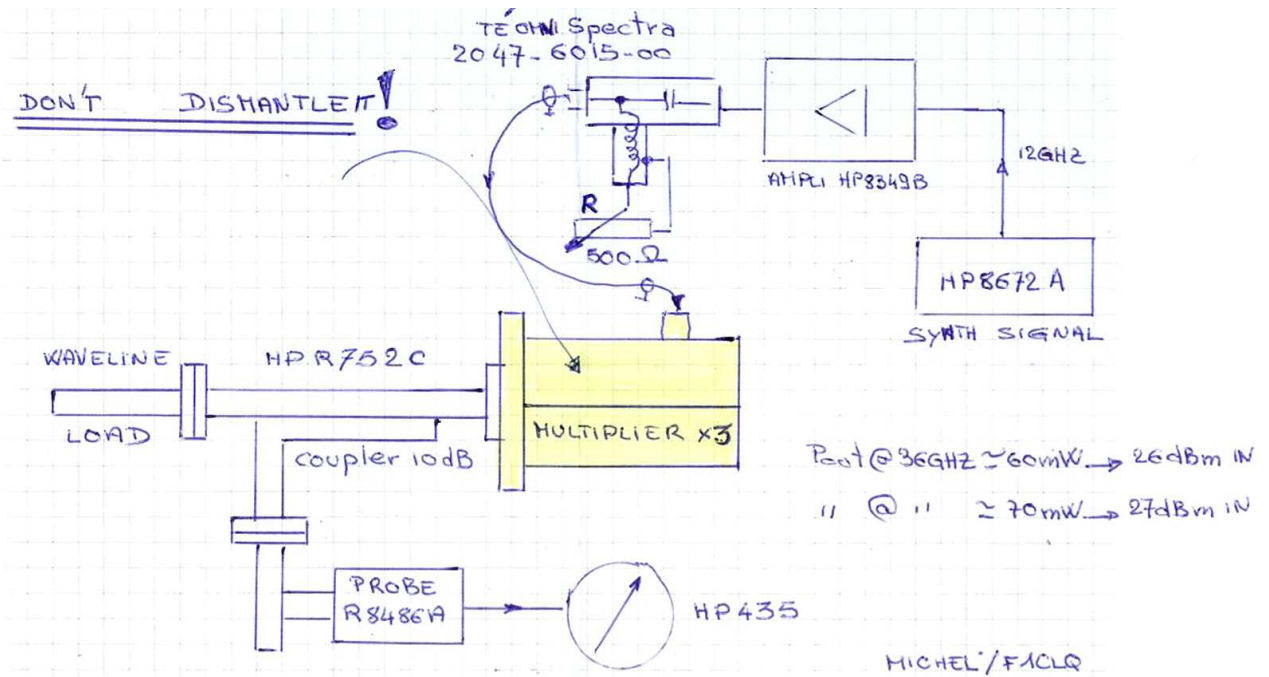 TECHNI Spectra
2047-6015-00
DON'T DISMANTLE IT!
12GHZ
AMPLI HP8349B
R
500Ω
HP8672A
SYNTH SIGNAL
WAVELINE
HP R752C
LOAD
coupler 10dB
MULTIPLIER x3
Pout @ 36GHZ ≃ 60mW → 26dBm IN
" @ " ≃ 70mW → 27dBm IN
PROBE
R8486A
HP435
MICHEL/F1CLQ